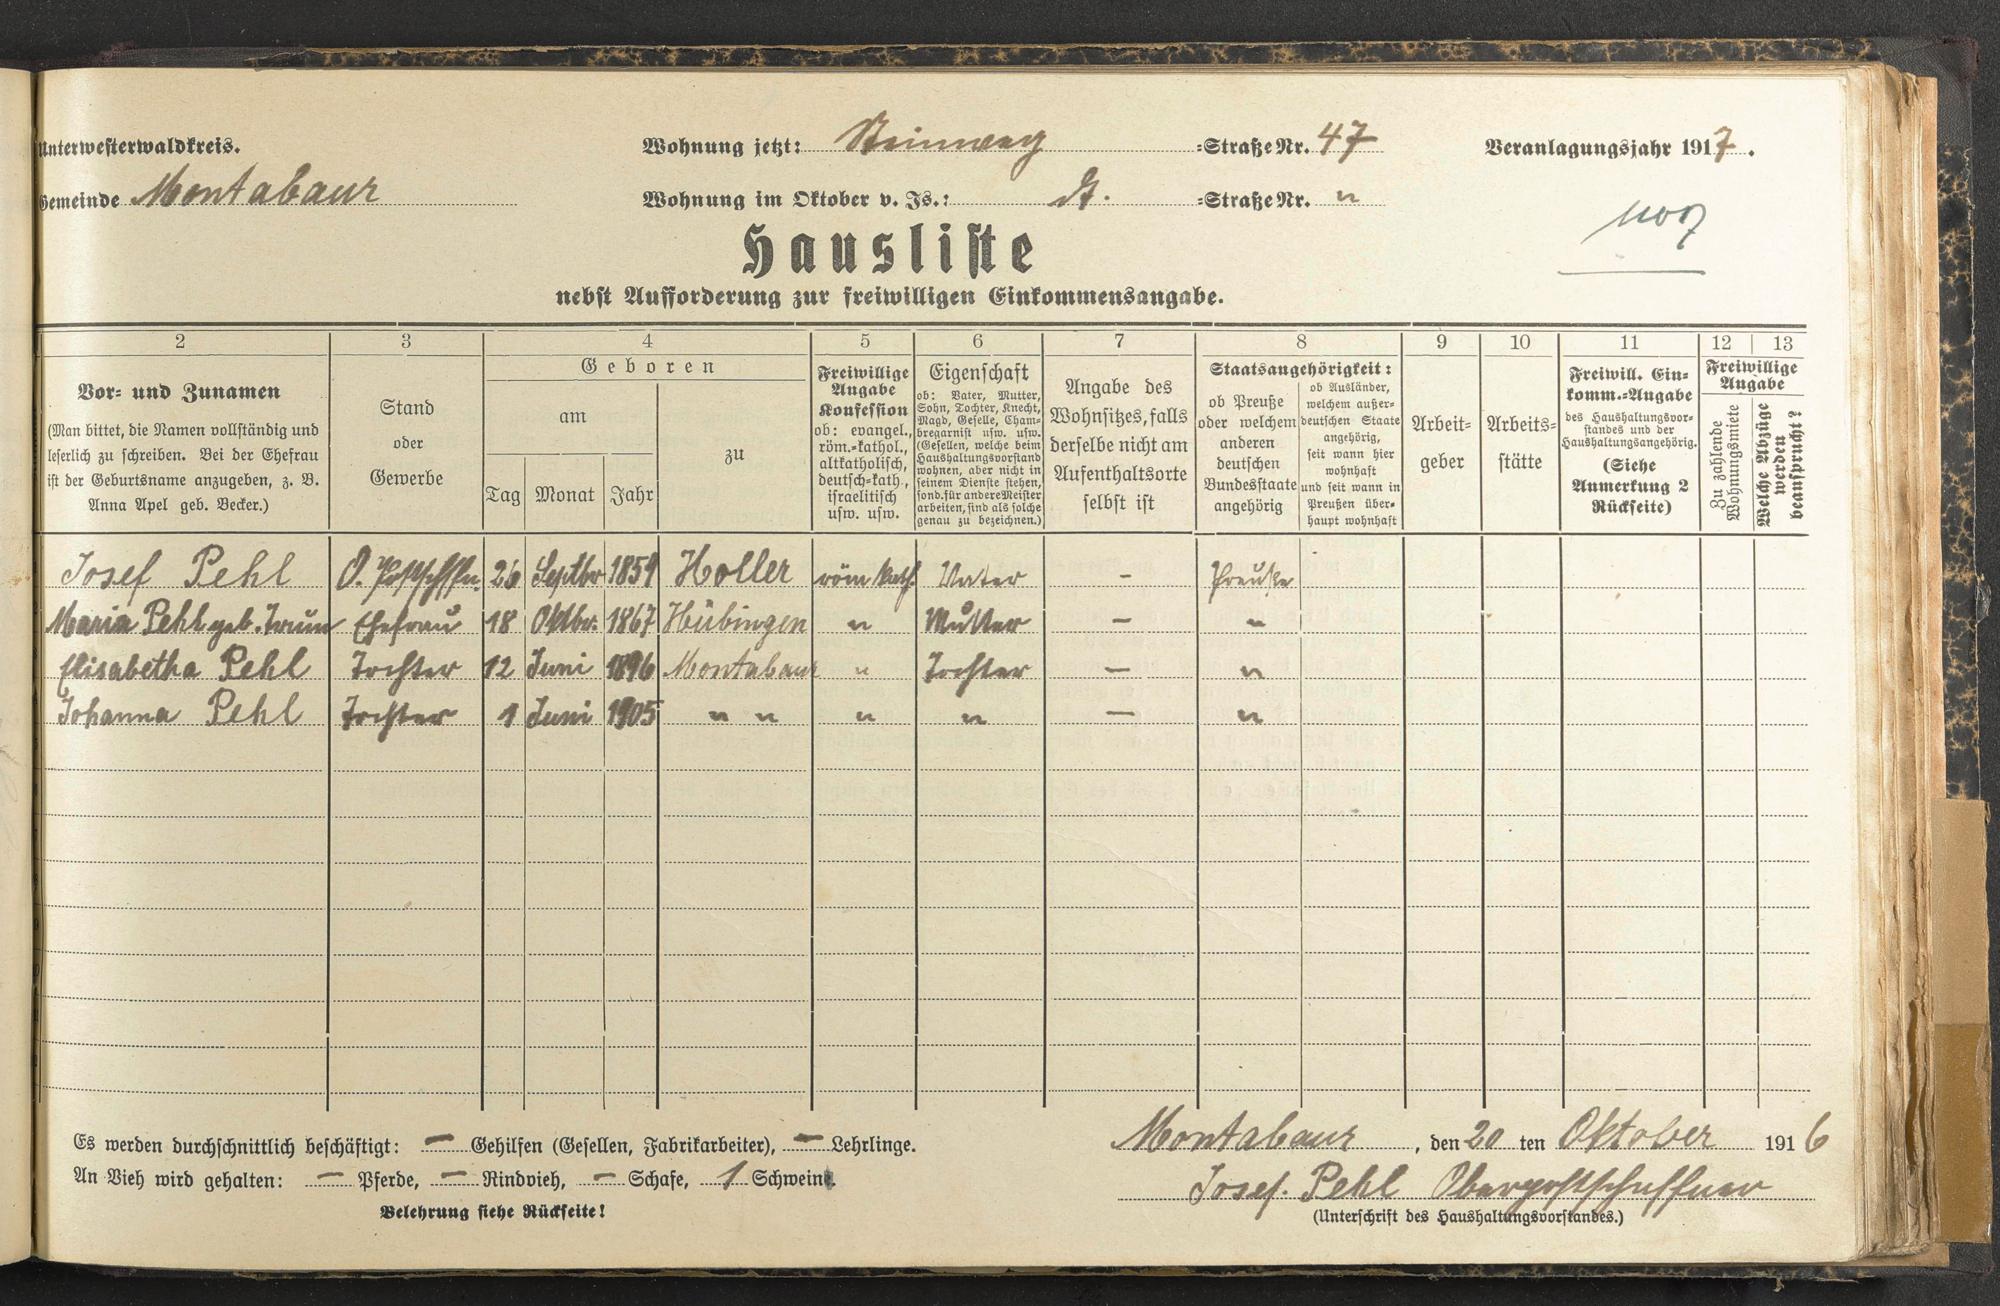 Unterwesterwaldkreis. Wohnung jetzt: Steinweg -Straße Nr. 47 Veranlagungsjahr 1917.
Gemeinde Montabaur Wohnung im Oktober v. Js.: -Straße Nr. "
Hausliste
nebst Aufforderung zur freiwilligen Einkommensangabe.
2 3 4 5 6 7 8 9 10 11 12 13
Vor- und Zunamen
(Man bittet, die Namen vollständig und
leserlich zu schreiben. Bei der Ehefrau
ist der Geburtsname anzugeben, z. B.
Anna Apel geb. Becker.)
Stand
oder
Gewerbe
Geboren
am
Tag Monat Jahr
zu
Freiwillige
Angabe
Konfession
ob: evangel.,
röm.-kathol.,
altkatholisch,
deutsch-kath.,
israelitisch
usw. usw.
Eigenschaft
ob: Vater, Mutter,
Sohn, Tochter, Knecht,
Magd, Geselle, Cham-
bregarnist usw. usw.
(Gesellen, welche beim
Haushaltungsvorstand
wohnen, aber nicht in
seinem Dienste stehen,
sond. für andere Meister
arbeiten, sind als solche
genau zu bezeichnen.)
Angabe des
Wohnsitzes, falls
derselbe nicht am
Aufenthaltsorte
selbst ist
Staatsangehörigkeit:
ob Preuße
oder welchem
anderen
deutschen
Bundesstaate
angehörig
ob Ausländer,
welchem außer-
deutschen Staate
angehörig,
seit wann hier
wohnhaft
und seit wann in
Preußen über-
haupt wohnhaft
Arbeit-
geber
Arbeits-
stätte
Freiwill. Ein-
komm.-Angabe
des Haushaltungsvor-
standes und der
Haushaltungsangehörig.
(Siehe
Anmerkung 2
Rückseite)
Freiwillige
Angabe
Zu zahlende
Wohnungsmiete
Welche Abzüge
werden
beansprucht?
Josef Pehl O. Postschffn. 26 Septbr 1859 Holler röm kath. Vater – Preuße
Maria Pehl geb. Ehefrau 18 Oktbr. 1867 Hübingen " Mutter – "
Elisabetha Pehl Tochter 12 Juni 1896 Montabaur " Tochter – "
Johanna Pehl Tochter 1 Juni 1905 " " " " – "
Es werden durchschnittlich beschäftigt: – Gehilfen (Gesellen, Fabrikarbeiter), – Lehrlinge.
An Vieh wird gehalten: – Pferde, – Rindvieh, – Schafe, 1 Schwein
Belehrung siehe Rückseite!
Montabaur, den 20 ten Oktober 1916
Josef Pehl Oberpostschaffner
(Unterschrift des Haushaltungsvorstandes.)